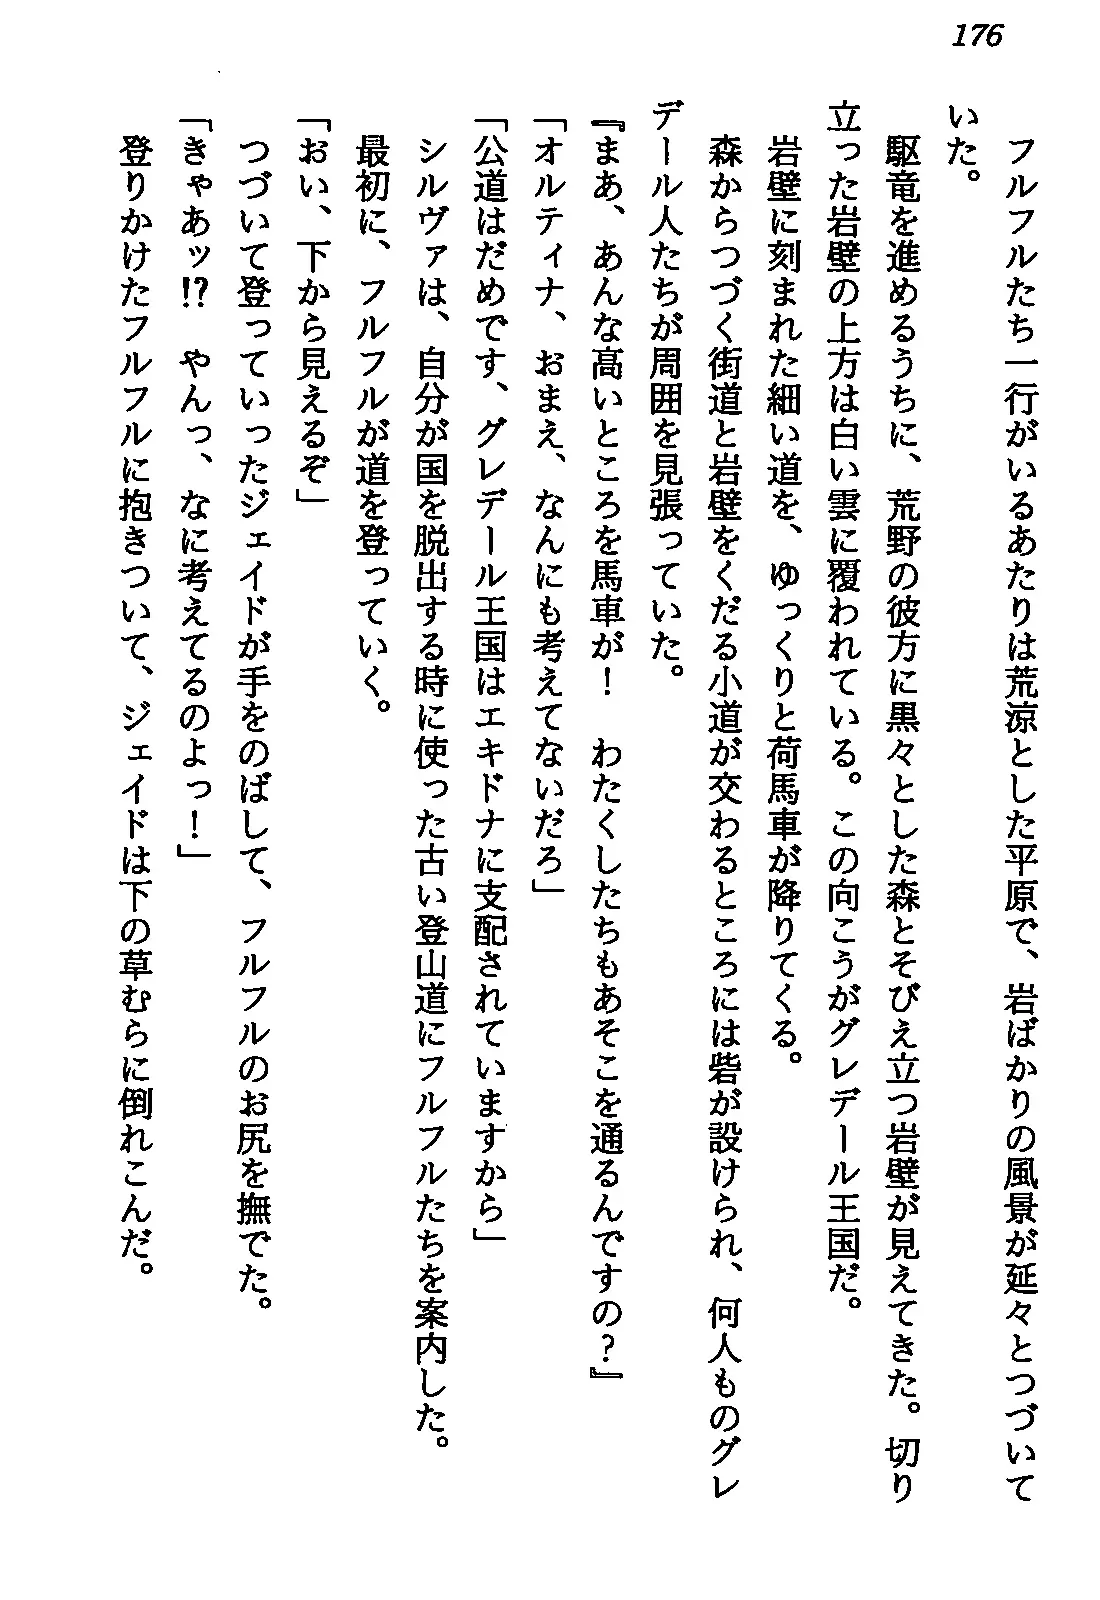 176
フルフルたち一行がいるあたりは荒涼とした平原で、岩ばかりの風景が延々とつづいて
いた。
駆竜を進めるうちに、荒野の彼方に黒々とした森とそびえ立つ岩壁が見えてきた。切り
立った岩壁の上方は白い雲に覆われている。この向こうがグレデール王国だ。
岩壁に刻まれた細い道を、ゆっくりと荷馬車が降りてくる。
森からつづく街道と岩壁をくだる小道が交わるところには砦が設けられ、何人ものグレ
デール人たちが周囲を見張っていた。
『まあ、あんな高いところを馬車が！　わたくしたちもあそこを通るんですの？』
「オルティナ、おまえ、なんにも考えてないだろ」
「公道はだめです、グレデール王国はエキドナに支配されていますから」
シルヴァは、自分が国を脱出する時に使った古い登山道にフルフルたちを案内した。
最初に、フルフルが道を登っていく。
「おい、下から見えるぞ」
つづいて登っていったジェイドが手をのばして、フルフルのお尻を撫でた。
「きゃあッ!?　やんっ、なに考えてるのよっ！」
登りかけたフルフルに抱きついて、ジェイドは下の草むらに倒れこんだ。